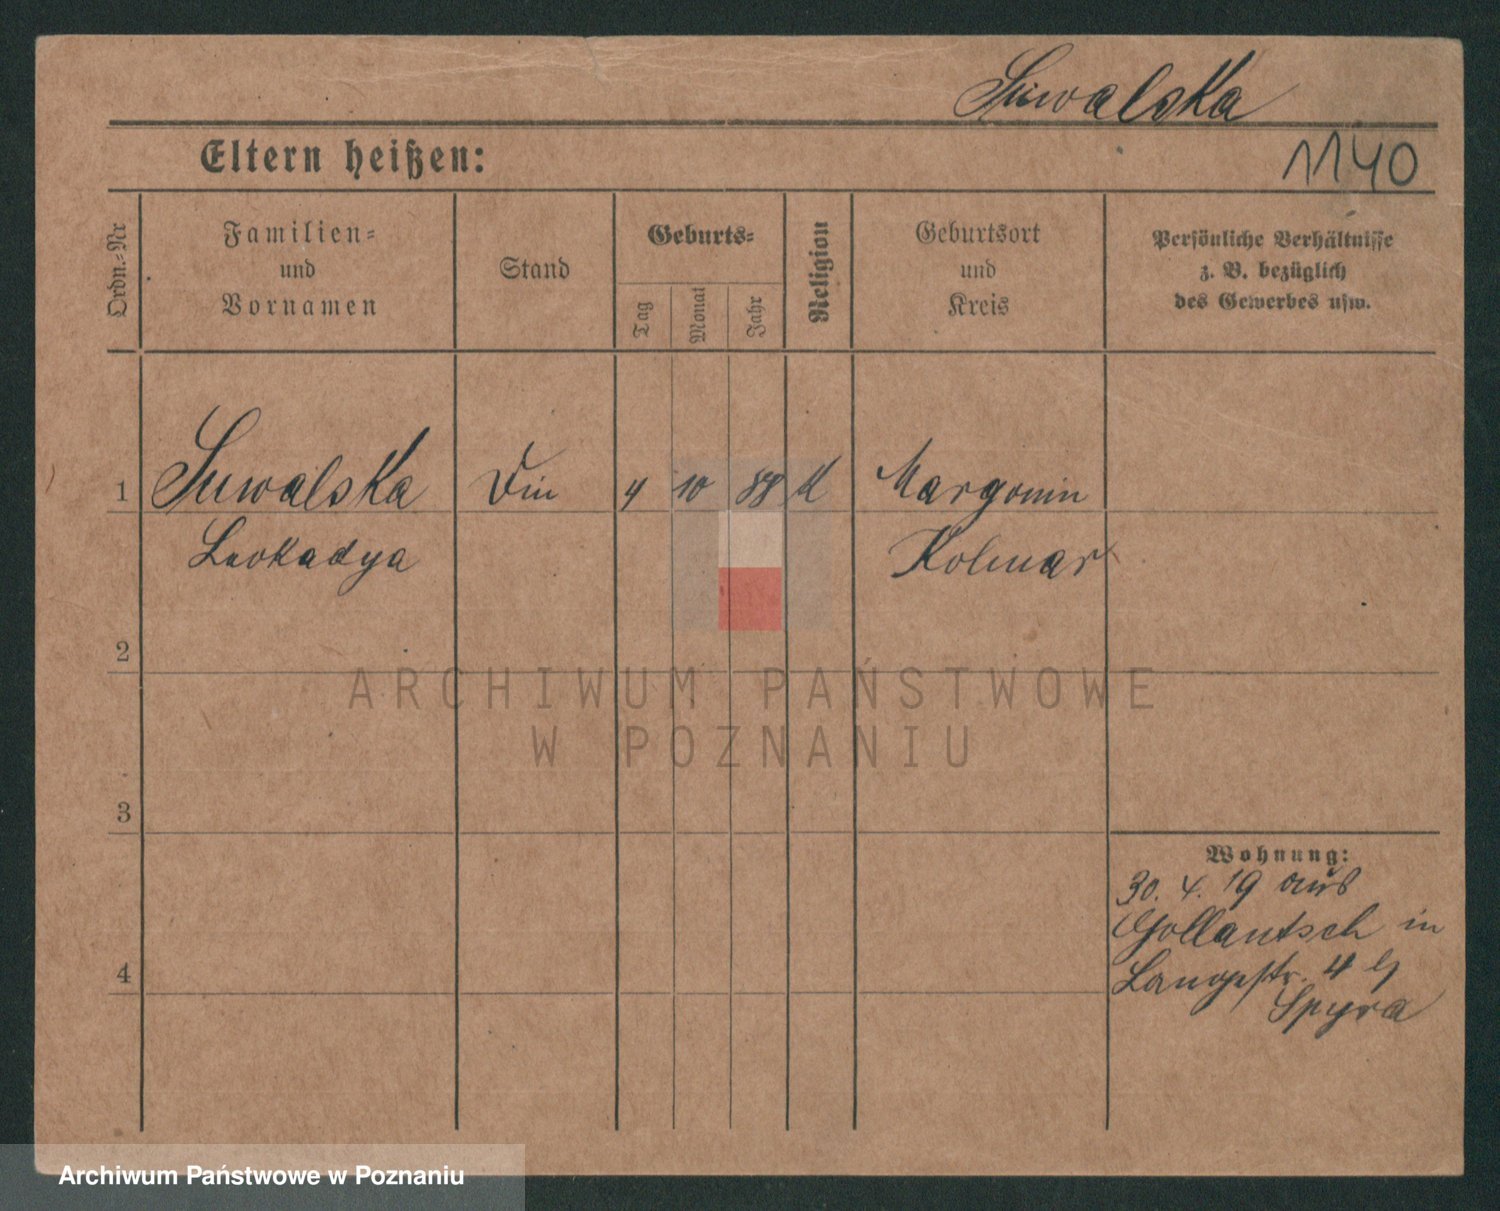 Suwalska
Eltern heißen:
1140
Ordn.-Nr
Familien-
und
Vornamen
Stand
Geburts-
Tag
Monat
Jahr
Religion
Geburtsort
und
Kreis
Persönliche Verhältnisse
z. B. bezüglich
des Gewerbes usw.
1 Suwalska 4 10 88 K Margonin
Leokadya Kolmar
2
3
4
Wohnung:
30. 4. 19 aus
Gollantsch in
Langestr. 4 b/
Spyra
ARCHIWUM PAŃSTWOWE
W POZNANIU
Archiwum Państwowe w Poznaniu